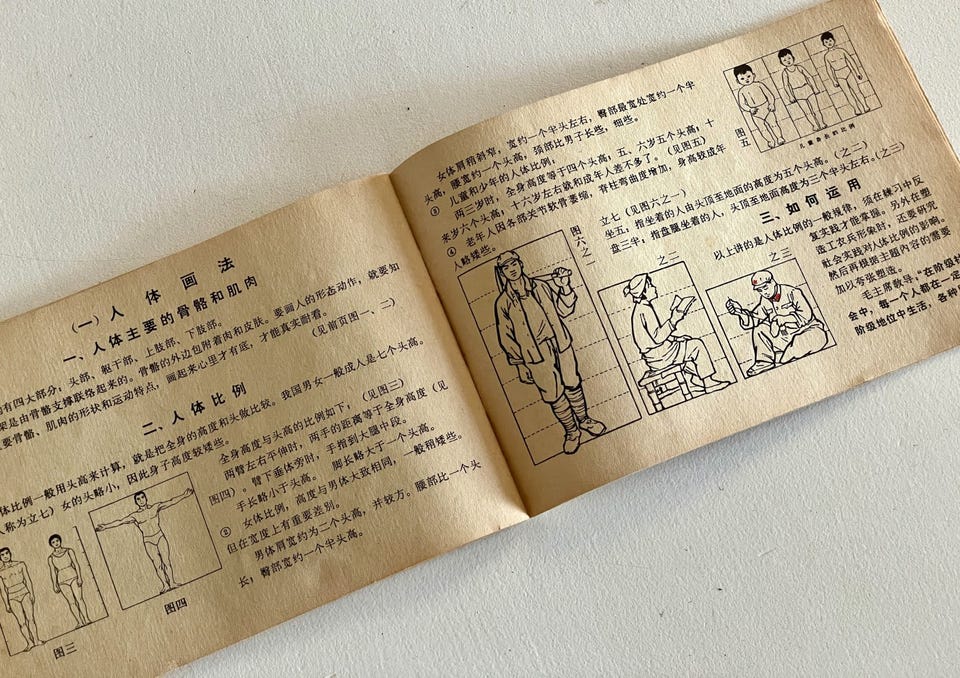 (一) 人体画法
一、人体主要的骨骼和肌肉
有四大部分：头部、躯干部、上肢部、下肢部。
架是由骨骼支撑联络起来的。骨骼的外边包附着肉和皮肤。要画人的形态动作，就要知
要骨骼、肌肉的形状和运动特点，画起来心里才有底，才能真实耐看。（见前页图一、二）
二、人体比例
体比例一般用头高来计算，就是把全身的高度和头做比较。我国男女一般成人是七个头高。
（称为立七）女的头略小，因此身子高度较矮些。
全身高度与头高的比例如下，（见图三）
两臂左右平伸时，两手的距离等于全身高度（见
图四）。臂下垂体旁时，手指到大腿中段。
手长略小于头高。 脚长略大于一个头高。
② 女体比例，高度与男体大致相同，一般稍矮些。
但在宽度上有重要差别。
男体肩宽约为二个头高，并较方。腰部比一个头
长，臀部宽约一个半头高。
图三
图四
女体肩稍斜窄，宽约一个半头左右，臀部最宽处宽约一个半
头高，腰宽约一个头高，颈部比男子长些，细些。
③ 儿童和少年的人体比例；
两三岁时，全身高度等于四个头高；五、六岁五个头高，十
来岁六个头高，十六岁左右就和成年人差不多了。（见图五）
④ 老年人因各部关节软骨萎缩，脊柱弯曲度增加，身高较成年
人略矮些。
图五
儿童身长的比例
立七（见图六之一）
坐五：指坐着的人由头顶至地面的高度为五个头高。（之二）
盘三半：指盘腿坐着的人，头顶至地面高度为三个半头左右。（之三）
图六之一
之二
之三
三、如何运用
以上讲的是人体比例的一般规律，须在练习中反
复实践才能掌握。另外在塑
造工农兵形象时，还要研究
社会实践对人体比例的影响。
然后再根据主题内容的需要
加以夸张塑造。
毛主席教导：“在阶级社
会中，每一个人都在一定
阶级地位中生活，各种